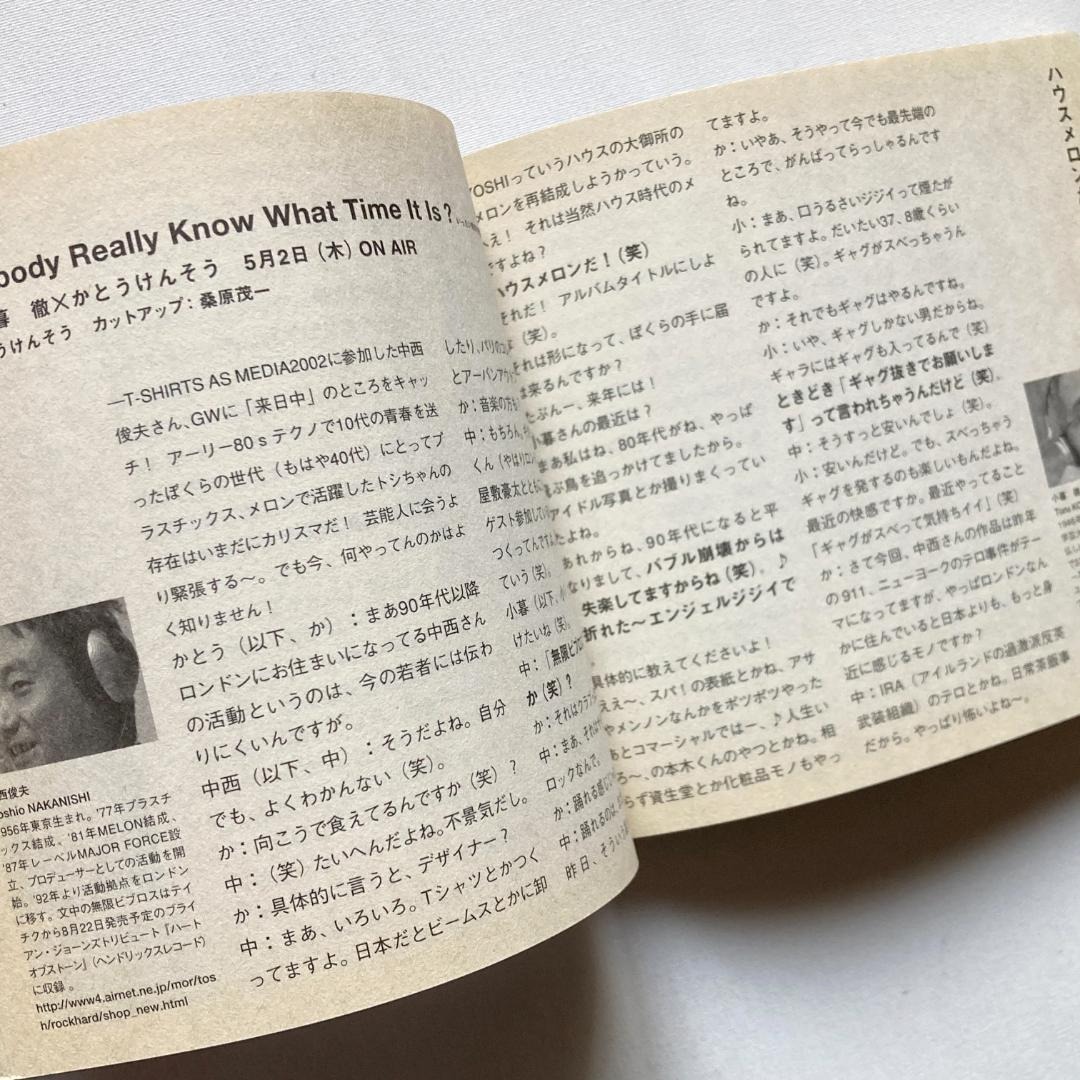 body Really Know What Time It Is?
暮 徹×かとうけんそう 5月2日（木）ON AIR
うけんそう カットアップ：桑原茂一
—T-SHIRTS AS MEDIA2002に参加した中西
俊夫さん、GWに「来日中」のところをキャッ
チ！ アーリー80sテクノで10代の青春を送
ったぼくらの世代（もはや40代）にとってプ
ラスチックス、メロンで活躍したトシちゃんの
存在はいまだにカリスマだ！ 芸能人に会うよ
り緊張する〜。でも今、何やってんのかはよ
く知りません！
かとう（以下、か）：まあ90年代以降
ロンドンにお住まいになってる中西さん
の活動というのは、今の若者には伝わ
りにくいんですが。
中西（以下、中）：そうだよね。自分
でも、よくわかんない（笑）。
か：向こうで食えてるんですか（笑）？
中：（笑）たいへんだよね。不景気だし。
か：具体的に言うと、デザイナー？
中：まあ、いろいろ。Tシャツとかつく
ってますよ。日本だとビームスとかに卸
西俊夫
oshio NAKANISHI
956年東京生まれ。'77年プラスチ
ックス結成、'81年MELON結成、
'87年レーベルMAJOR FORCE設
立、プロデューサーとしての活動を開
始。'92年より活動拠点をロンドン
に移す。文中の無限ビプロスはテイ
チクから8月22日発売予定のブライ
アン・ジョーンズトリビュート「ハート
オブストーン」（ヘンドリックスレコード）
に収録 。
http://www4.airnet.ne.jp/mor/tos
h/rockhard/shop_new.html
したり、パリのコ
とアーバンアウト
か：音楽の方も
中：もちろん、
くん（やはりロン
屋敷豪太ととも
ゲスト参加してい
つくってんですよ
ていう（笑）。
小暮（以下、小
けたいね（笑）。
中：「無限ビプロ
か（笑）？
か：それはクラ
中：まあ、それは
ロックなんで。
か：踊れる感じ
中：踊れるのは、
昨日、そうい
YOSHIっていうハウスの大御所の
メロンを再結成しようかっていう。
へえ！ それは当然ハウス時代のメ
ですよね？
ハウスメロンだ！（笑）
それだ！ アルバムタイトルにしよ
（笑）。
それは形になって、ぼくらの手に届
は来るんですか？
たぶんー、来年には！
小暮さんの最近は？
まあ私はね、80年代がね、やっぱ
ぶ鳥を追っかけてましたから。
アイドル写真とか撮りまくってい
たよね。
あれからね、90年代になると平
なりまして、バブル崩壊からは
失楽してますからね（笑）。♪
折れた〜エンジェルジジイで
具体的に教えてくださいよ！
ええ〜、スパ！の表紙とかね、アサ
やメンノンなんかをポツポツやった
あとコマーシャルではー、♪人生い
ろ〜、の本木くんのやつとかね。相
らず資生堂とか化粧品モノもやっ
てますよ。
か：いやあ、そうやって今でも最先端の
ところで、がんばってらっしゃるんです
ね。
小：まあ、口うるさいジジイって煙たが
られてますよ。だいたい37、8歳くらい
の人に（笑）。ギャグがスベっちゃうん
ですよ。
か：それでもギャグはやるんですね。
小：いや、ギャグしかない男だからね。
ギャラにはギャグも入ってるんで（笑）
ときどき「ギャグ抜きでお願いしま
す」って言われちゃうんだけど（笑）。
中：そうすっと安いんでしょ（笑）。
小：安いんだけど。でも、スベっちゃう
ギャグを発するのも楽しいもんだよね。
最近の快感ですか。最近やってること
「ギャグがスベって気持ちイイ」（笑）
か：さて今回、中西さんの作品は昨年
の911、ニューヨークのテロ事件がテー
マになってますが、やっぱロンドンなん
かに住んでいると日本よりも、もっと身
近に感じるモノですか？
中：IRA（アイルランドの過激派反英
武装組織）のテロとかね。日常茶飯事
だから。やっぱり怖いよね〜。
ハウスメロン
小暮